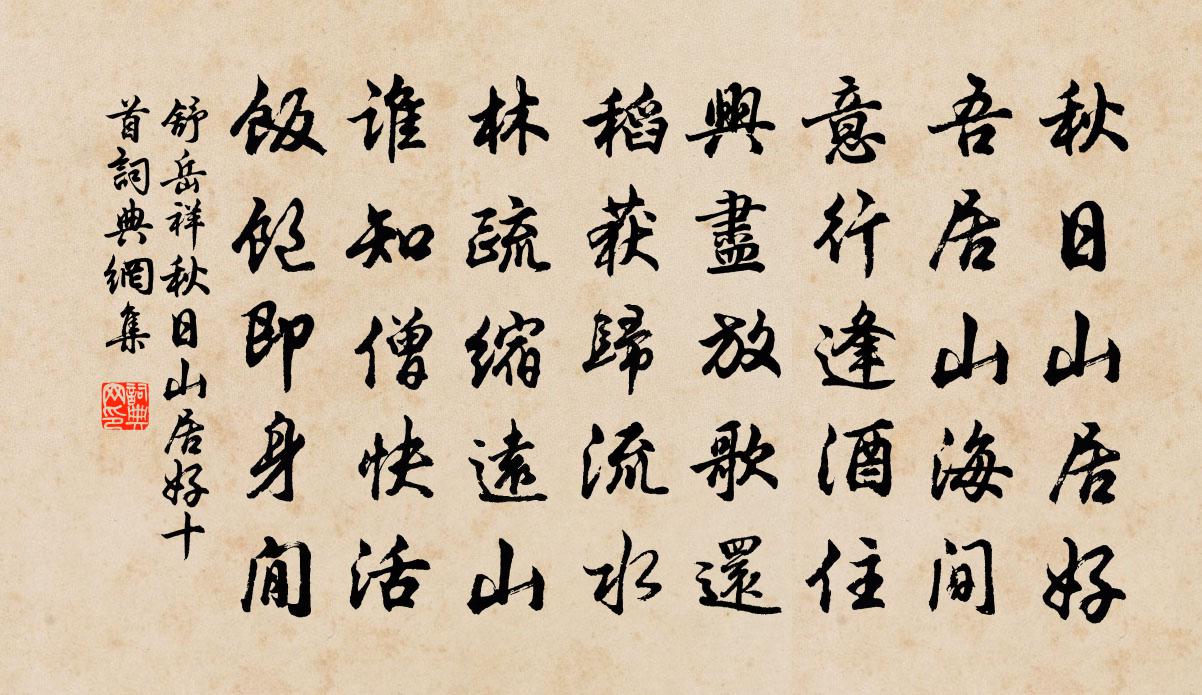 秋日山居好
吾居山海间
意行逢酒住
興盡放歌還
稻获歸流水
林疏縮遠山
谁知僧快活
飯飽即身閒
舒岳祥秋日山居好十
首詞典網集
詞典
网印